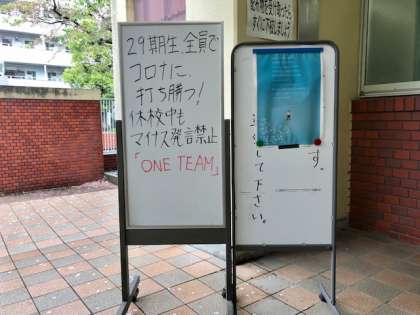 29期生、全員で
コロナに、
打ち勝つ!
休校中も
マイナス発言禁止
「ONE TEAM」
す。
して下さい。